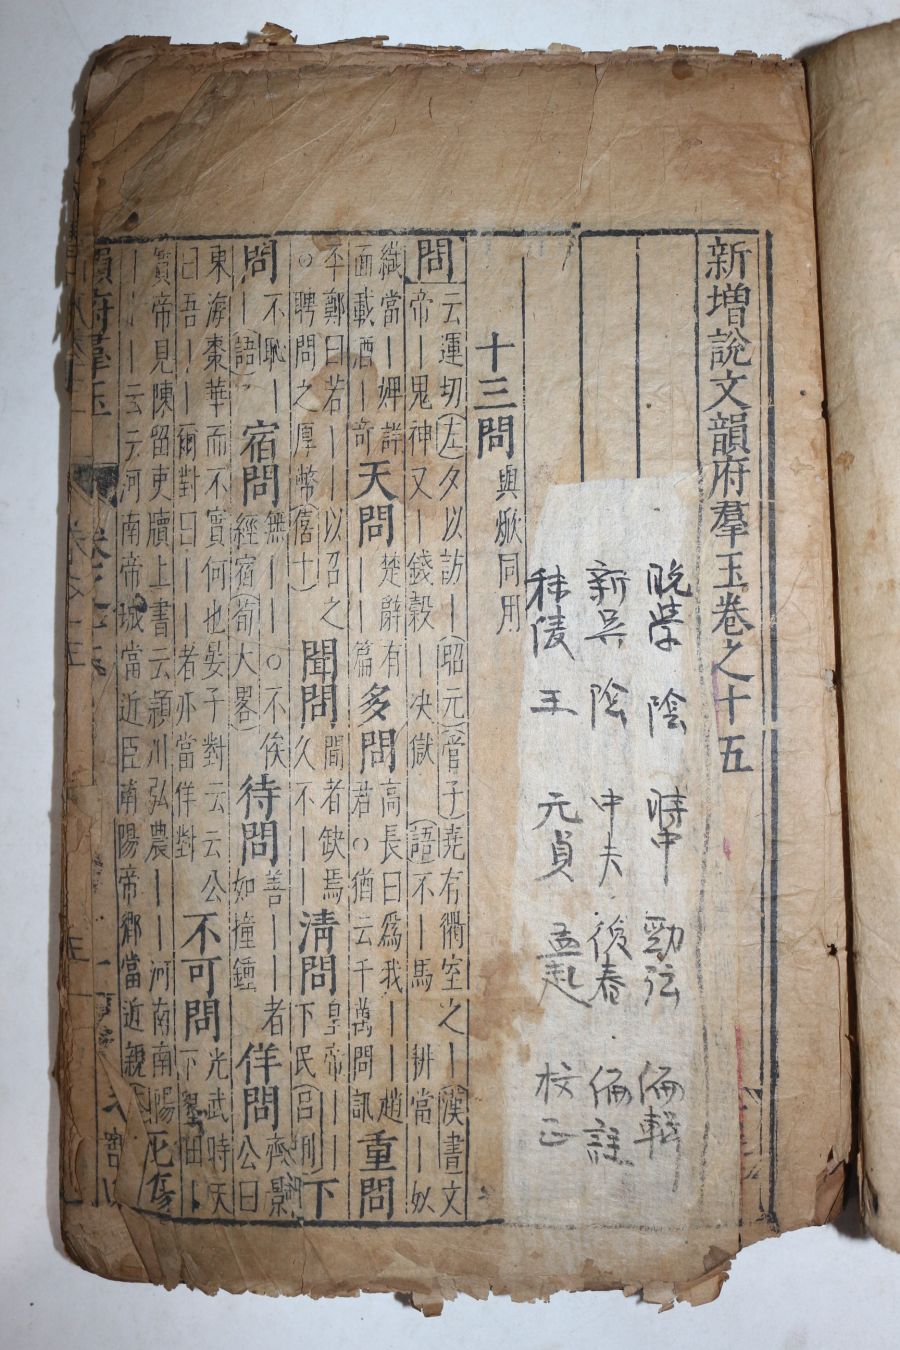 新增說文韻府羣玉卷之十五
晩學 陰 時中 勁弦 編輯
新吳 陰 中夫 復春 編註
秣陵 王 元貞 孟起 校正
十三問與焮同用
問云運切左夕以訪丨昭元管子堯有衢室之丨漢書文
帝丨鬼神又丨錢穀丨决獄語不丨馬 耕當丨奴
織當丨婢 載酒丨奇 天問楚辭有丨丨篇 多問高長曰爲我丨丨趙君○猶云千萬問訊 重問
李鄭曰若丨丨丨以召之
○聘問之厚幣僖十 聞問聞者缺焉久不丨丨 淸問皇帝丨丨下民呂刑 下
問不恥丨丨語 宿問無丨丨○不俟經宿荀大畧 待問善丨丨者如撞鍾 佯問齊景公曰
東海棗華而不實何也晏子對云云公
曰吾丨丨爾對曰丨丨者亦當佯對 不可問光武時天下墾田丨丨
實帝見陳留吏牘上書云頴川弘農丨丨河南南陽
丨丨丨云云河南帝城當近臣南陽帝鄕當近親
韻府羣玉